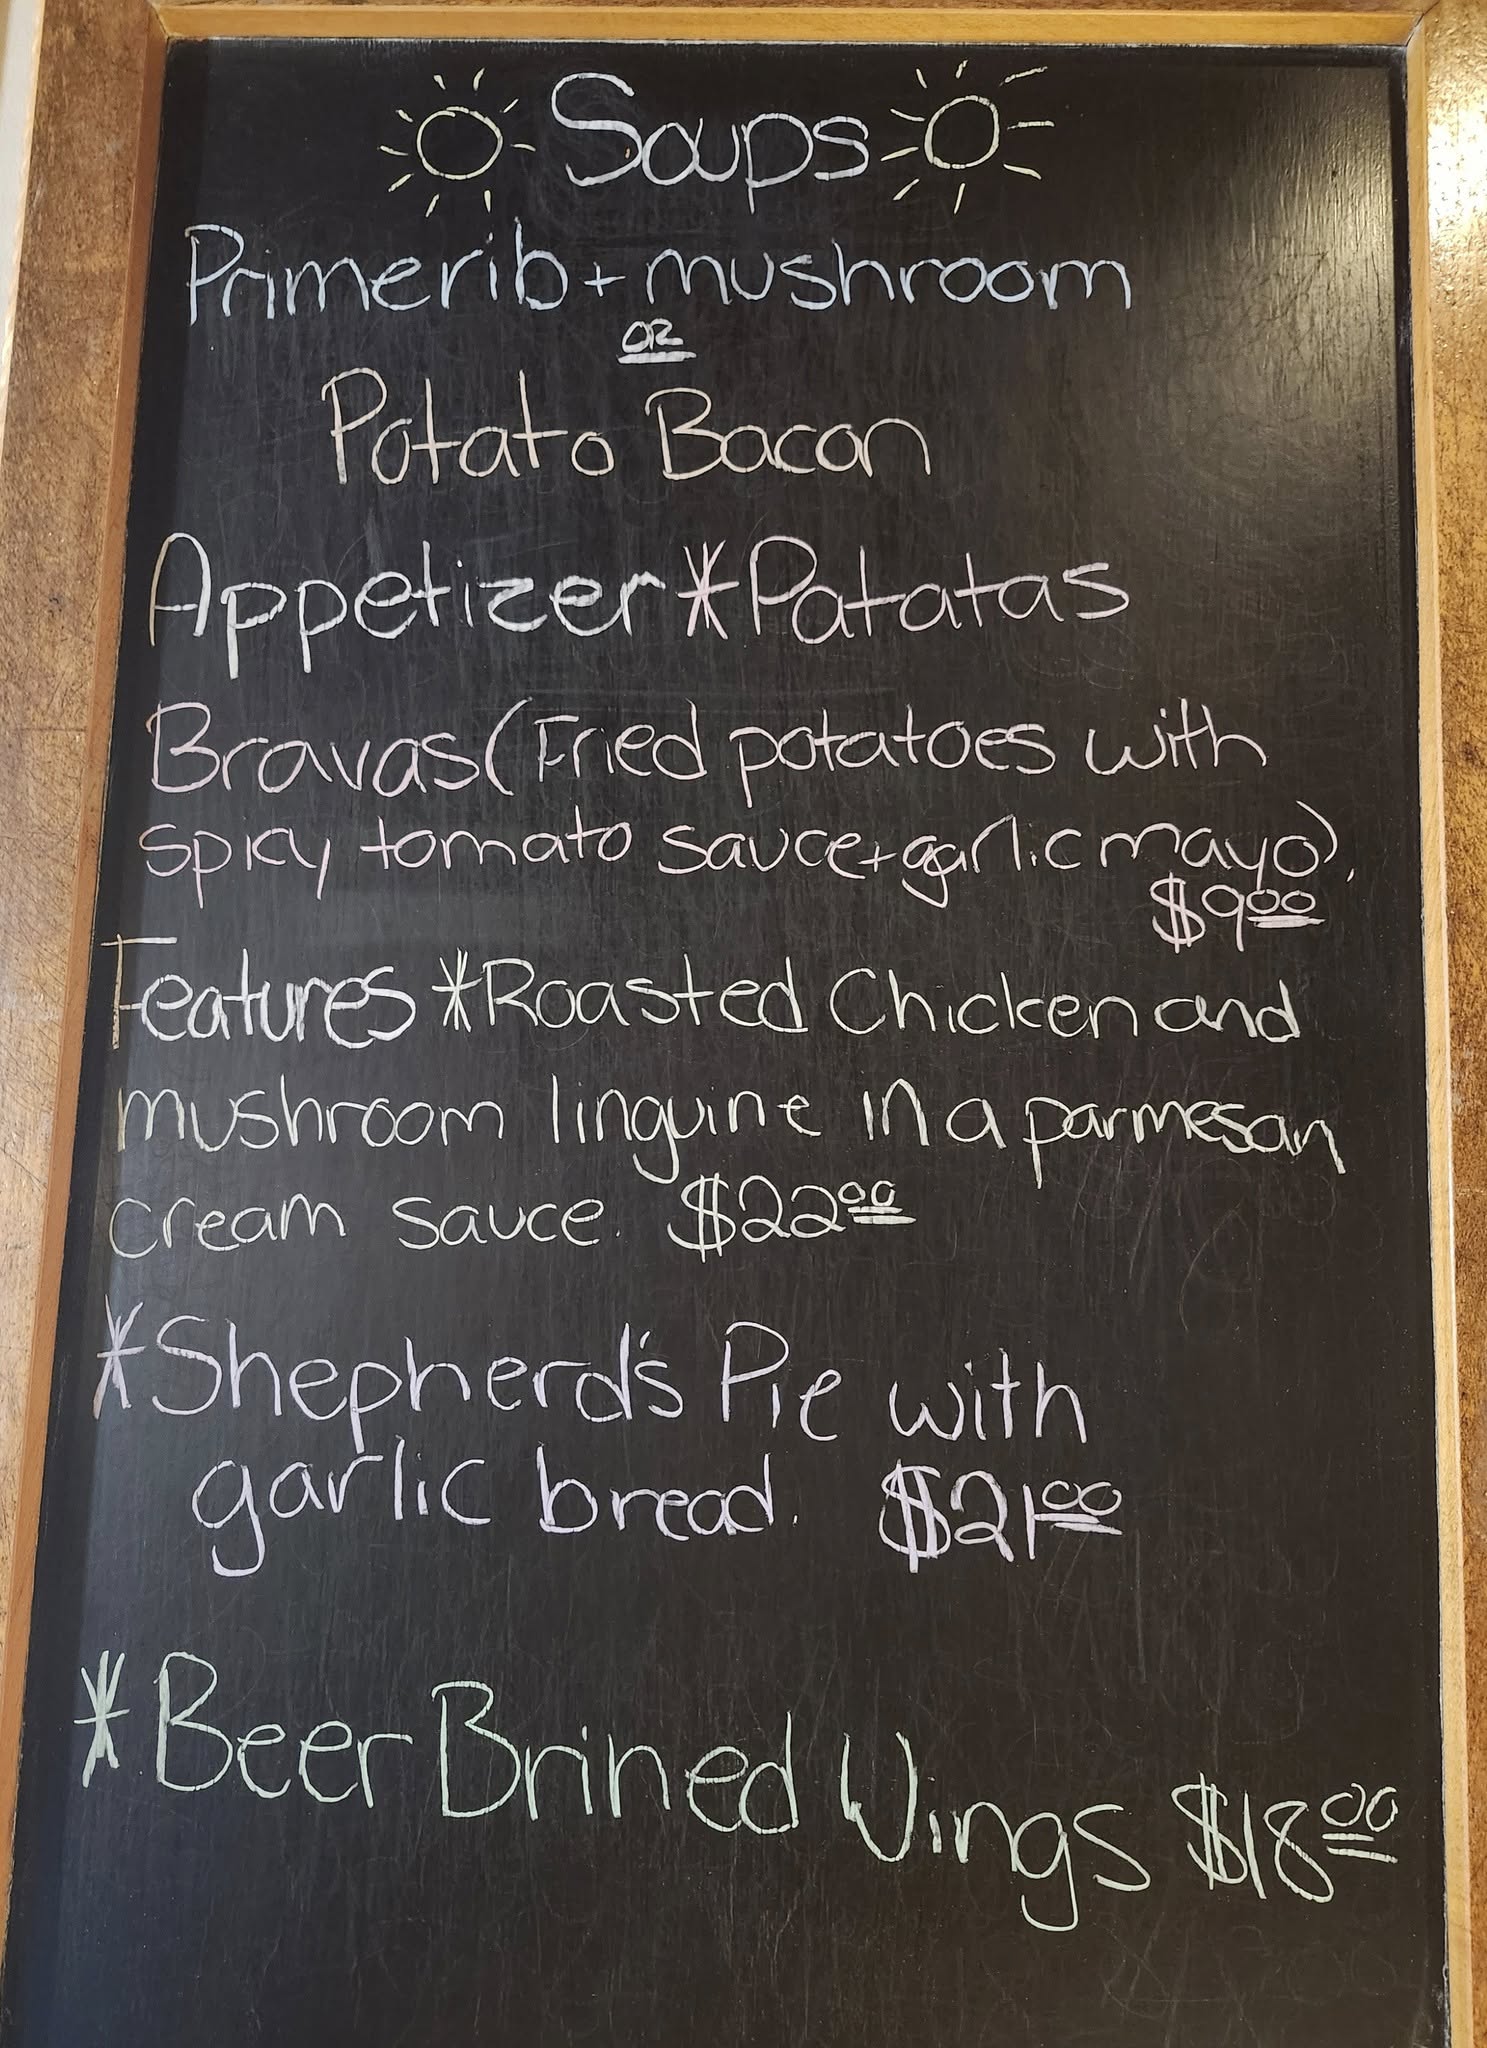 Soups
Primerib + mushroom
OR
Potato Bacon
Appetizer * Patatas
Bravas (Fried potatoes with
spicy tomato sauce + garlic mayo).
$9.00
Features * Roasted Chicken and
mushroom linguine in a parmesan
cream sauce. $22.00
* Shepherd's Pie with
garlic bread. $21.00
* Beer Brined Wings $18.00